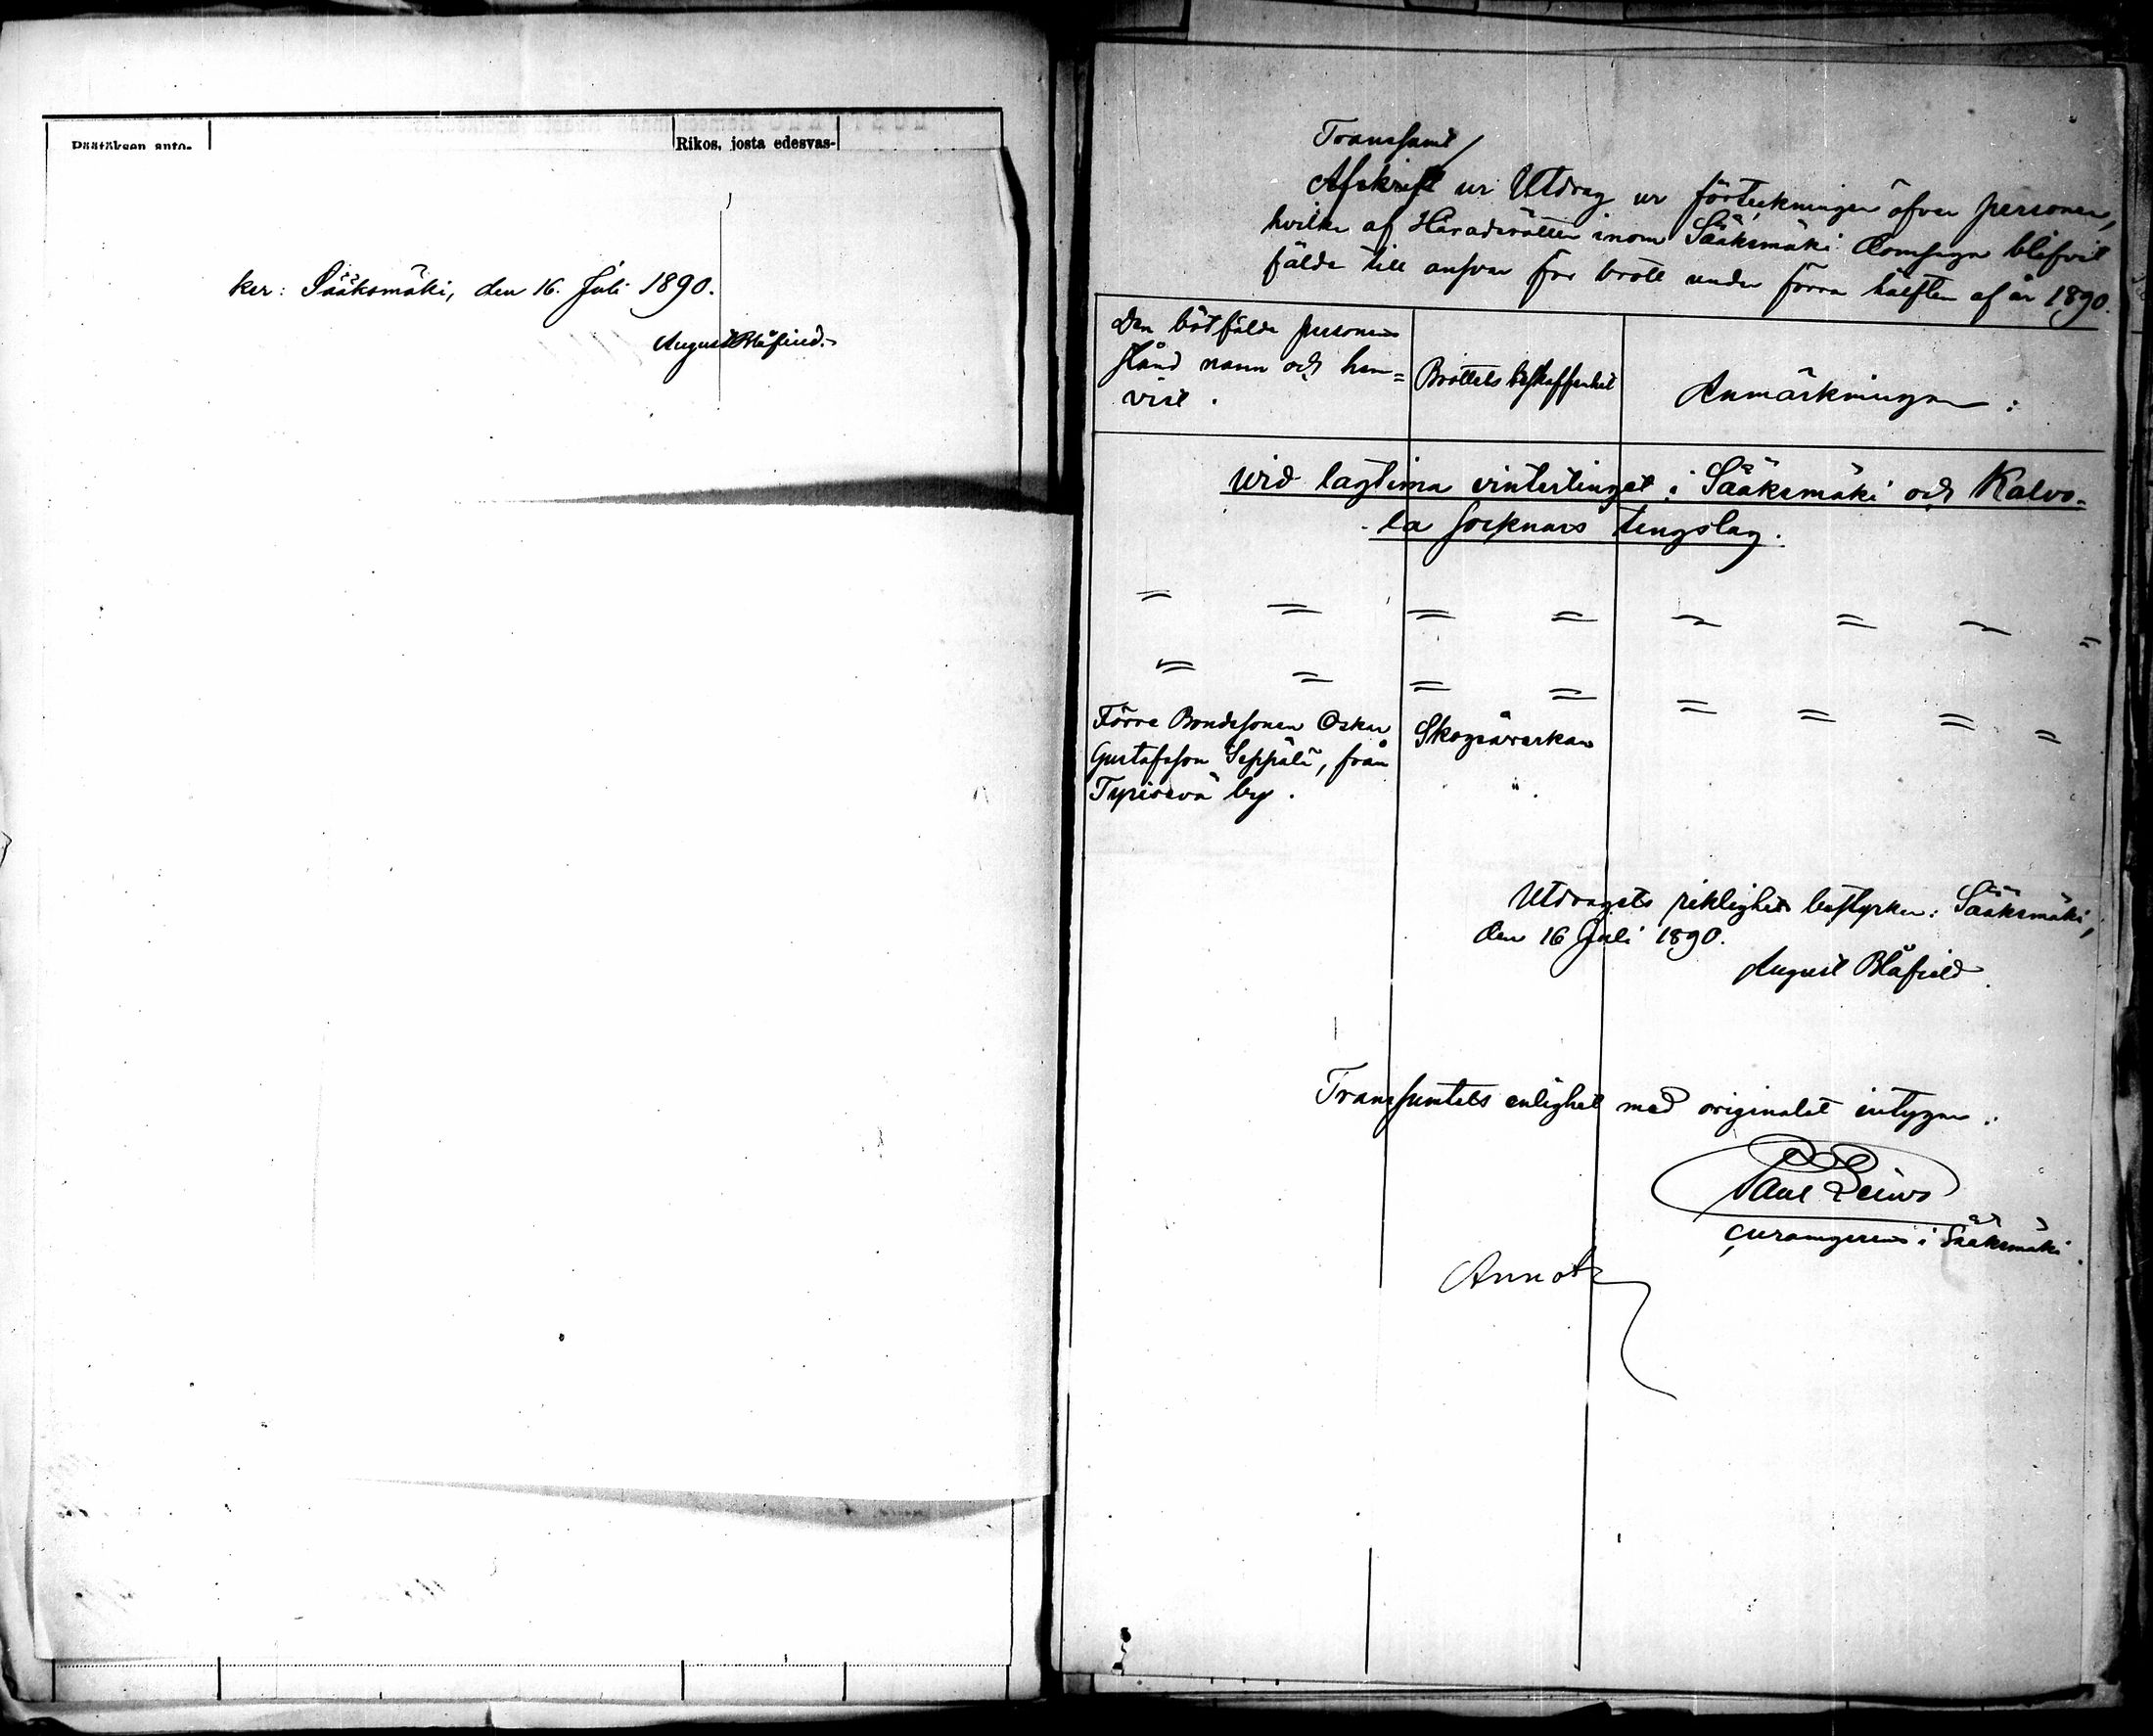 Päätöksen anto-
Rikos, josta edesvas-
ker: Sääksmäki, den 16. Juli 1890.
August Blåfield.
Transsumt
Afskrift ur Utdrag ur förteckningen öfver personer,
hvilka af Häradsrätten inom Sääksmäki Domsaga blifvit
fälda till ansvar för brott under förra hälften af år 1890.
Den bötfälda personens
stånd namn och hem=
vist.
Brottets beskaffenhet
Anmärkningar:
Wid lagtima vintertinget i Sääksmäki och Kalvo-
la socknars tingslag.
= = = = = = = =
= = = = = = = =
Förre Bondesonen Oskar
Gustafsson Seppälä, från
by.
Skogsåverkan
"
Utdragets riktighet bestyrker: Sääksmäki,
den 16 Juli 1890.
August Blåfield.
Transsumtets enlighet med originalet intygar:
Paul
i Sääksmäki.
Annot